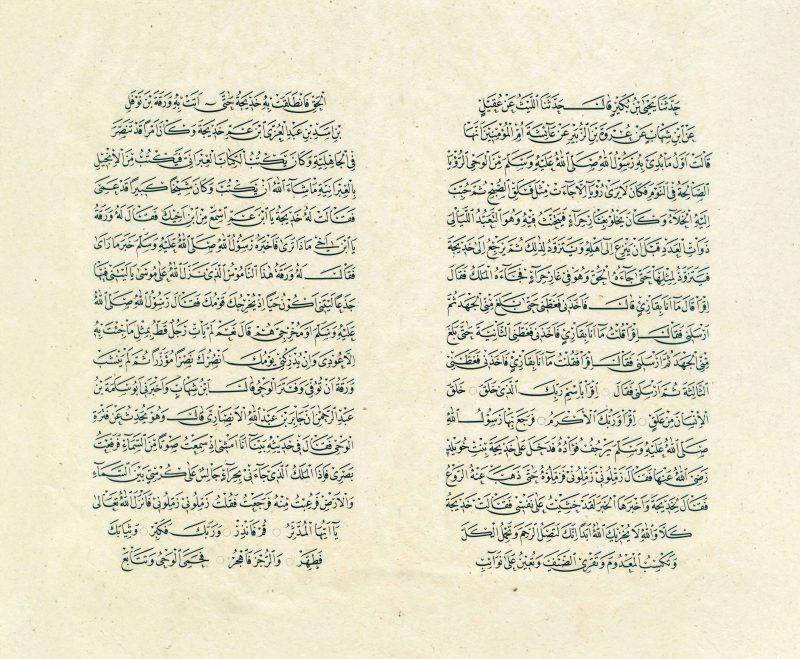 حدثنا يحيى بن بكير قال حدثنا الليث عن عقيل
عن ابن شهاب عن عروة بن الزبير عن عائشة أم المؤمنين أنها
قالت أول ما بدئ به رسول الله صلى الله عليه وسلم من الوحي الرؤيا
الصالحة في النوم فكان لا يرى رؤيا إلا جاءت مثل فلق الصبح ثم حبب
إليه الخلاء وكان يخلو بغار حراء فيتحنث فيه وهو التعبد الليالي
ذوات العدد قبل أن ينزع إلى أهله ويتزود لذلك ثم يرجع إلى خديجة
فيتزود لمثلها حتى جاءه الحق وهو في غار حراء فجاءه الملك فقال
اقرأ قال ما أنا بقارئ قال فأخذني فغطني حتى بلغ مني الجهد ثم
أرسلني فقال اقرأ قلت ما أنا بقارئ فأخذني فغطني الثانية حتى بلغ
مني الجهد ثم أرسلني فقال اقرأ فقلت ما أنا بقارئ فأخذني فغطني
الثالثة ثم أرسلني فقال اقرأ باسم ربك الذي خلق خلق
الإنسان من علق اقرأ وربك الأكرم فرجع بها رسول الله
صلى الله عليه وسلم يرجف فؤاده فدخل على خديجة بنت خويلد
رضي الله عنها فقال زملوني زملوني فزملوه حتى ذهب عنه الروع
فقال لخديجة وأخبرها الخبر لقد خشيت على نفسي فقالت خديجة
كلا والله لا يخزيك الله أبدا إنك لتصل الرحم وتحمل الكل
وتكسب المعدوم وتقري الضيف وتعين على نوائب
الحق فانطلقت به خديجة حتى أتت به ورقة بن نوفل
بن أسد بن عبد العزى ابن عم خديجة وكان امرأ قد تنصر
في الجاهلية وكان يكتب الكتاب العبراني فيكتب من الإنجيل
بالعبرانية ما شاء الله أن يكتب وكان شيخا كبيرا قد عمي
فقالت له خديجة يا ابن عم اسمع من ابن أخيك فقال له ورقة
يا ابن أخي ماذا ترى فأخبره رسول الله صلى الله عليه وسلم خبر ما رأى
فقال له ورقة هذا الناموس الذي نزل الله على موسى يا ليتني فيها
جذعا ليتني أكون حيا إذ يخرجك قومك فقال رسول الله صلى الله
عليه وسلم أومخرجي هم قال نعم لم يأت رجل قط بمثل ما جئت به
إلا عودي وإن يدركني يومك أنصرك نصرا مؤزرا ثم لم ينشب
ورقة أن توفي وفتر الوحي قال ابن شهاب وأخبرني أبو سلمة بن
عبد الرحمن أن جابر بن عبد الله الأنصاري قال وهو يحدث عن فترة
الوحي فقال في حديثه بينا أنا أمشي إذ سمعت صوتا من السماء فرفعت
بصري فإذا الملك الذي جاءني بحراء جالس على كرسي بين السماء
والأرض فرعبت منه فرجعت فقلت زملوني زملوني فأنزل الله تعالى
يا أيها المدثر قم فأنذر وربك فكبر وثيابك
فطهر والرجز فاهجر فحمي الوحي وتتابع